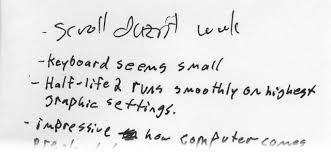 - scroll duzn't work
- keyboard seems small
- Half-life 2 runs smoothly on highest
graphic settings.
- impressive how computer comes